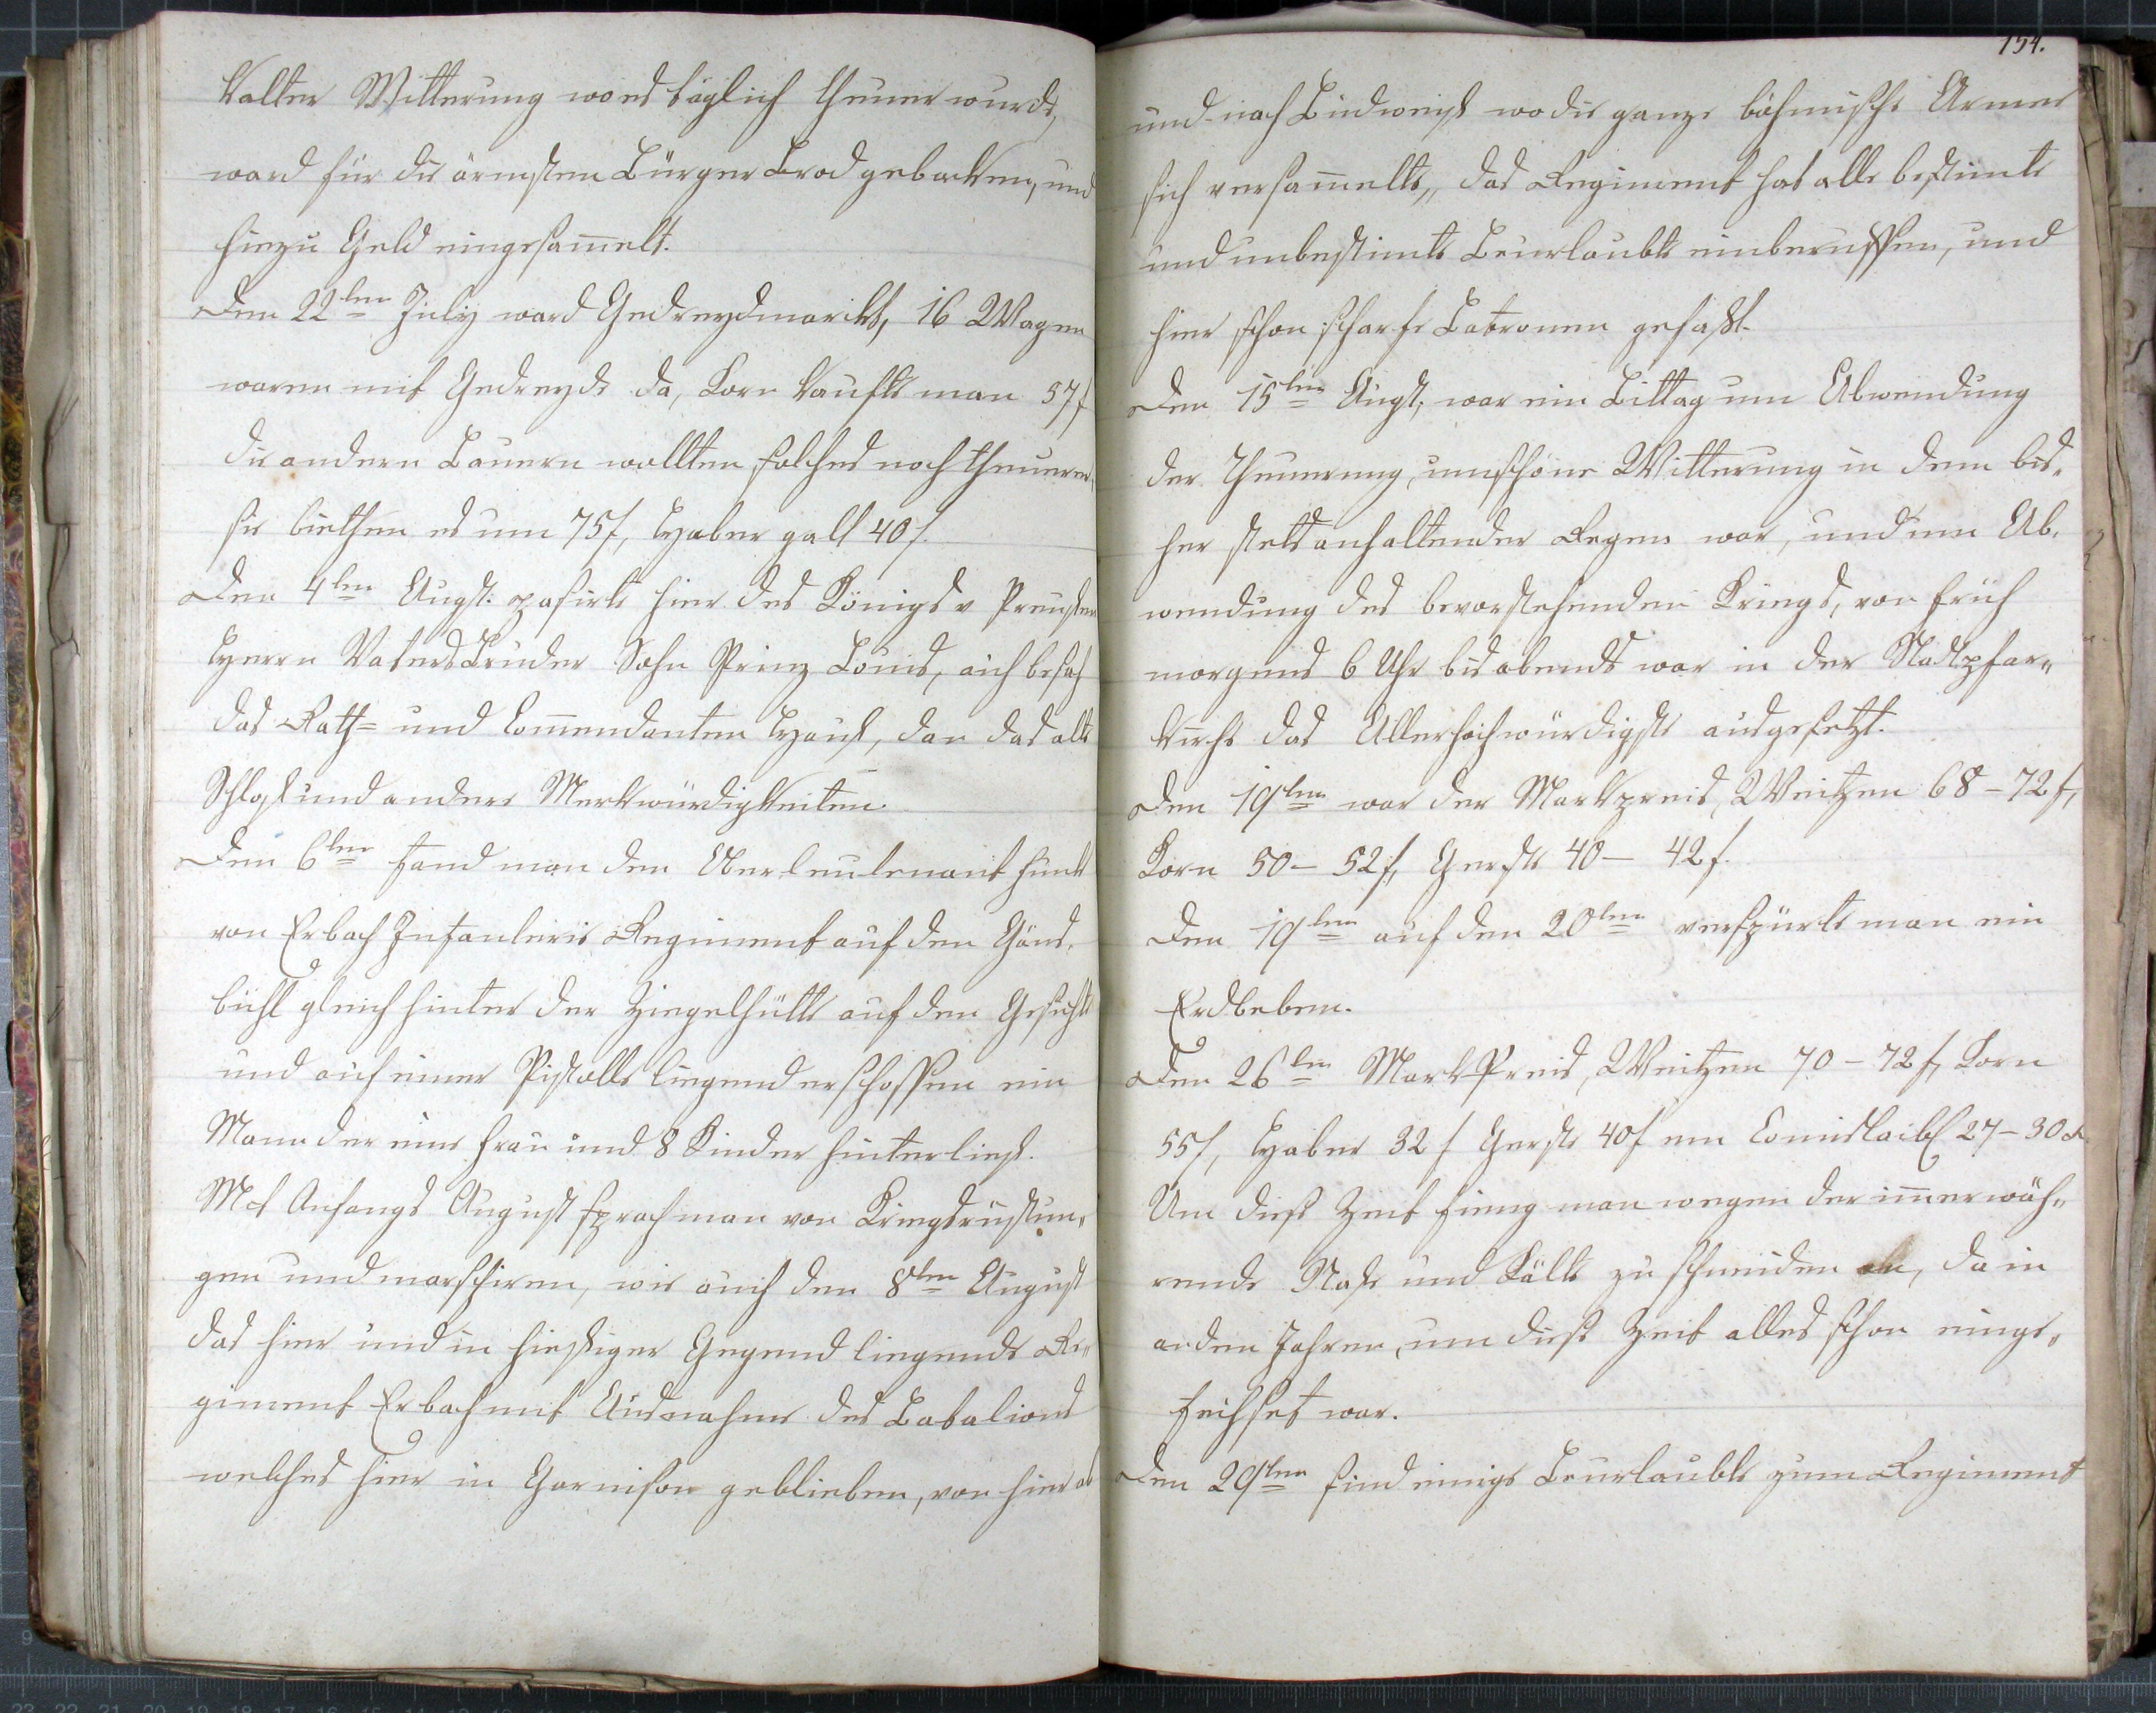 kalter Witterung wo es täglich theuer wurde,
ward für die ärmsten Bürger Brod gebacken, und
hiezu Geld eingesam̄elt.
Den 22ten July ward Gedreydmarckt, 16 Wagen
waren mit Gedreyde da, Korn kaufte man 57 f
die andern Bauern wollten solches noch theuerer,
sie biethen es um 75 f, Haber galt 40 f.
Den 4ten Augst: pasirte hier des Königs v Preußen
Herrn Vaters Bruder Sohn Prinz Louis, auch besah
das Rath- und Com̄endanten Hauß, dan das alte
Schloß und andere Merkwürdigkeiten.
Den 6ten fand man den Oberleutenant
von Erbach Infanterie Regiment auf den Gäns-
bichl gleich hinter der Ziegelhütte auf den Gesicht
und auf einer Pistolle liegend erschossen ein
Mann der eine Frau und 8 Kinder hinterließ.
Mit Anfangs August sprach man von Kriegsrüstun-
gen und marschiren, wie auch den 8ten August
das hier und in hiesiger Gegend liegende Re-
giment Erbach mit Ausnahme des Batalions
welches hier in Garnison geblieben, von hier ab
154.
und nach Budweiß wo die ganze böhmische Armee
sich versam̄elte, das Regiment hat alle bestimte
und unbestimte Beurlaubte einberuffen, und
hier schon scharfe Patronen gefaßt.
Den 15ten Augst: war ein Bittag um Abwendung
der Theuerung, um schöne Witterung in dem bis-
her stets anhaltender Regen war, und um Ab-
wendung des bevorstehenden Kriegs, von früh
morgens 6 Uhr bis abends war in der Stadtpfar-
kirche das Allerhochwürdigste ausgesetzt.
Den 19ten war der Markpreis, Weitzen 68 – 72 f,
Korn 50 – 52 f, Gerste 40 – 42 f.
Den 19ten auf den 20ten verspürte man ein
Erdbeben.
Den 26ten Mark Preis, Weitzen 70 – 72 f, Korn
55 f, Haber 32 f Gerste 40 f ein Comislaibl 27 – 30 x
Um diese Zeit fieng man wegen der im̄erwäh-
rende Nässe und Kälte zu schneiden an, da in
andern Jahren, um diese Zeit alles schon einge-
fechset war.
Den 29ten sind einige Beurlaubte zum Regiment